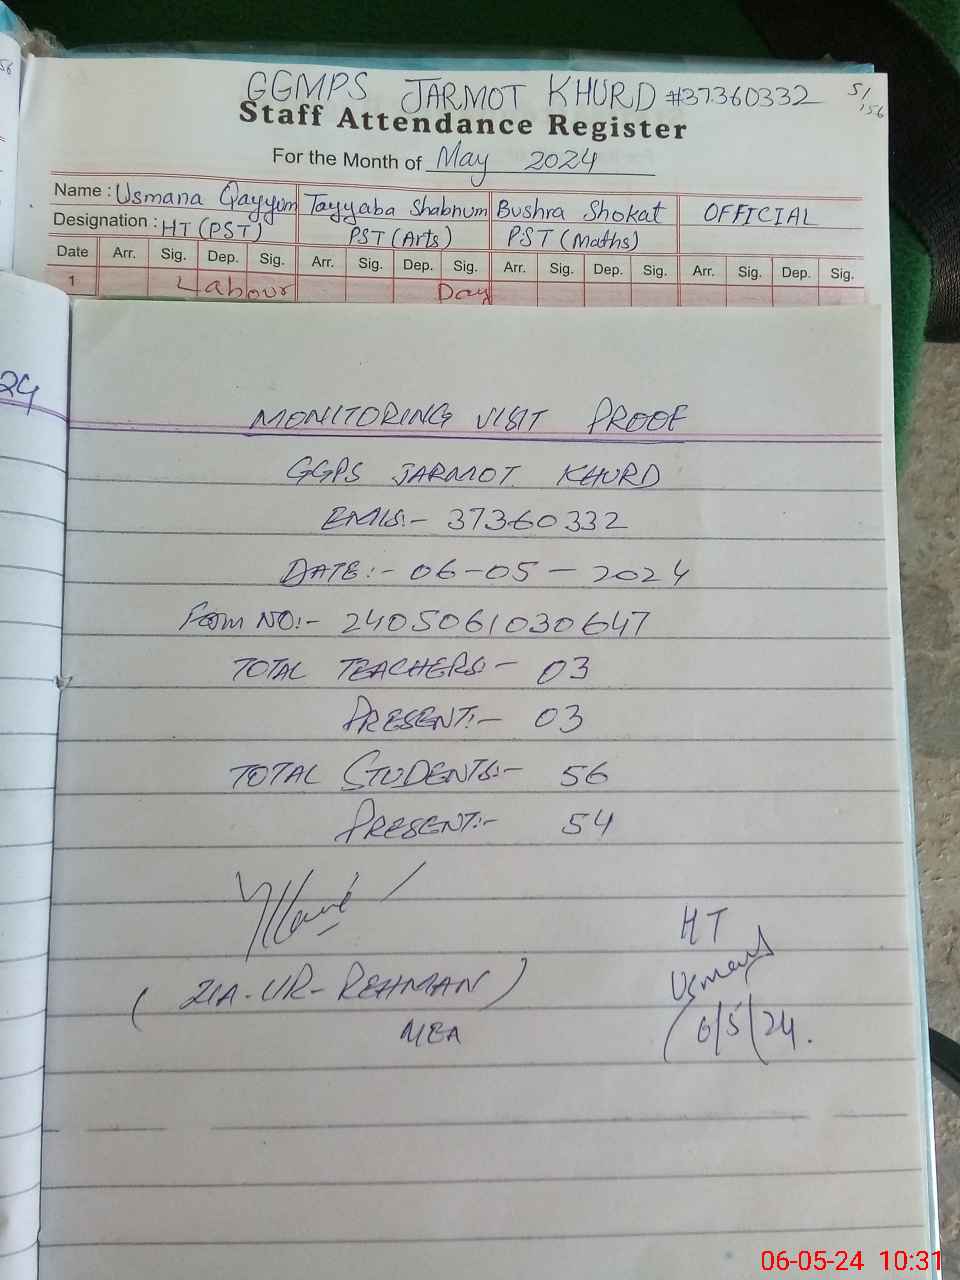 GGMPS JARMOT KHURD #37360332
5/156
Staff Attendance Register
For the Month of May 2024
Name : Usmana Qayyum Tayyaba Shabnum Bushra Shokat OFFICIAL
Designation : HT (PST) PST (Arts) PST (Maths)
Date Arr. Sig. Dep. Sig. Arr. Sig. Dep. Sig. Arr. Sig. Dep. Sig. Arr. Sig. Dep. Sig.
1 Labour Day
24
MONITORING VISIT PROOF
GGPS JARMOT KHURD
EMIS:- 37360332
DATE:- 06-05-2024
Form NO:- 2405061030647
TOTAL TEACHERS:- 03
PRESENT:- 03
TOTAL STUDENTS:- 56
PRESENT:- 54
(ZIA-UR-REHMAN)
MEA
HT
Usmana
6/5/24.
06-05-24 10:31